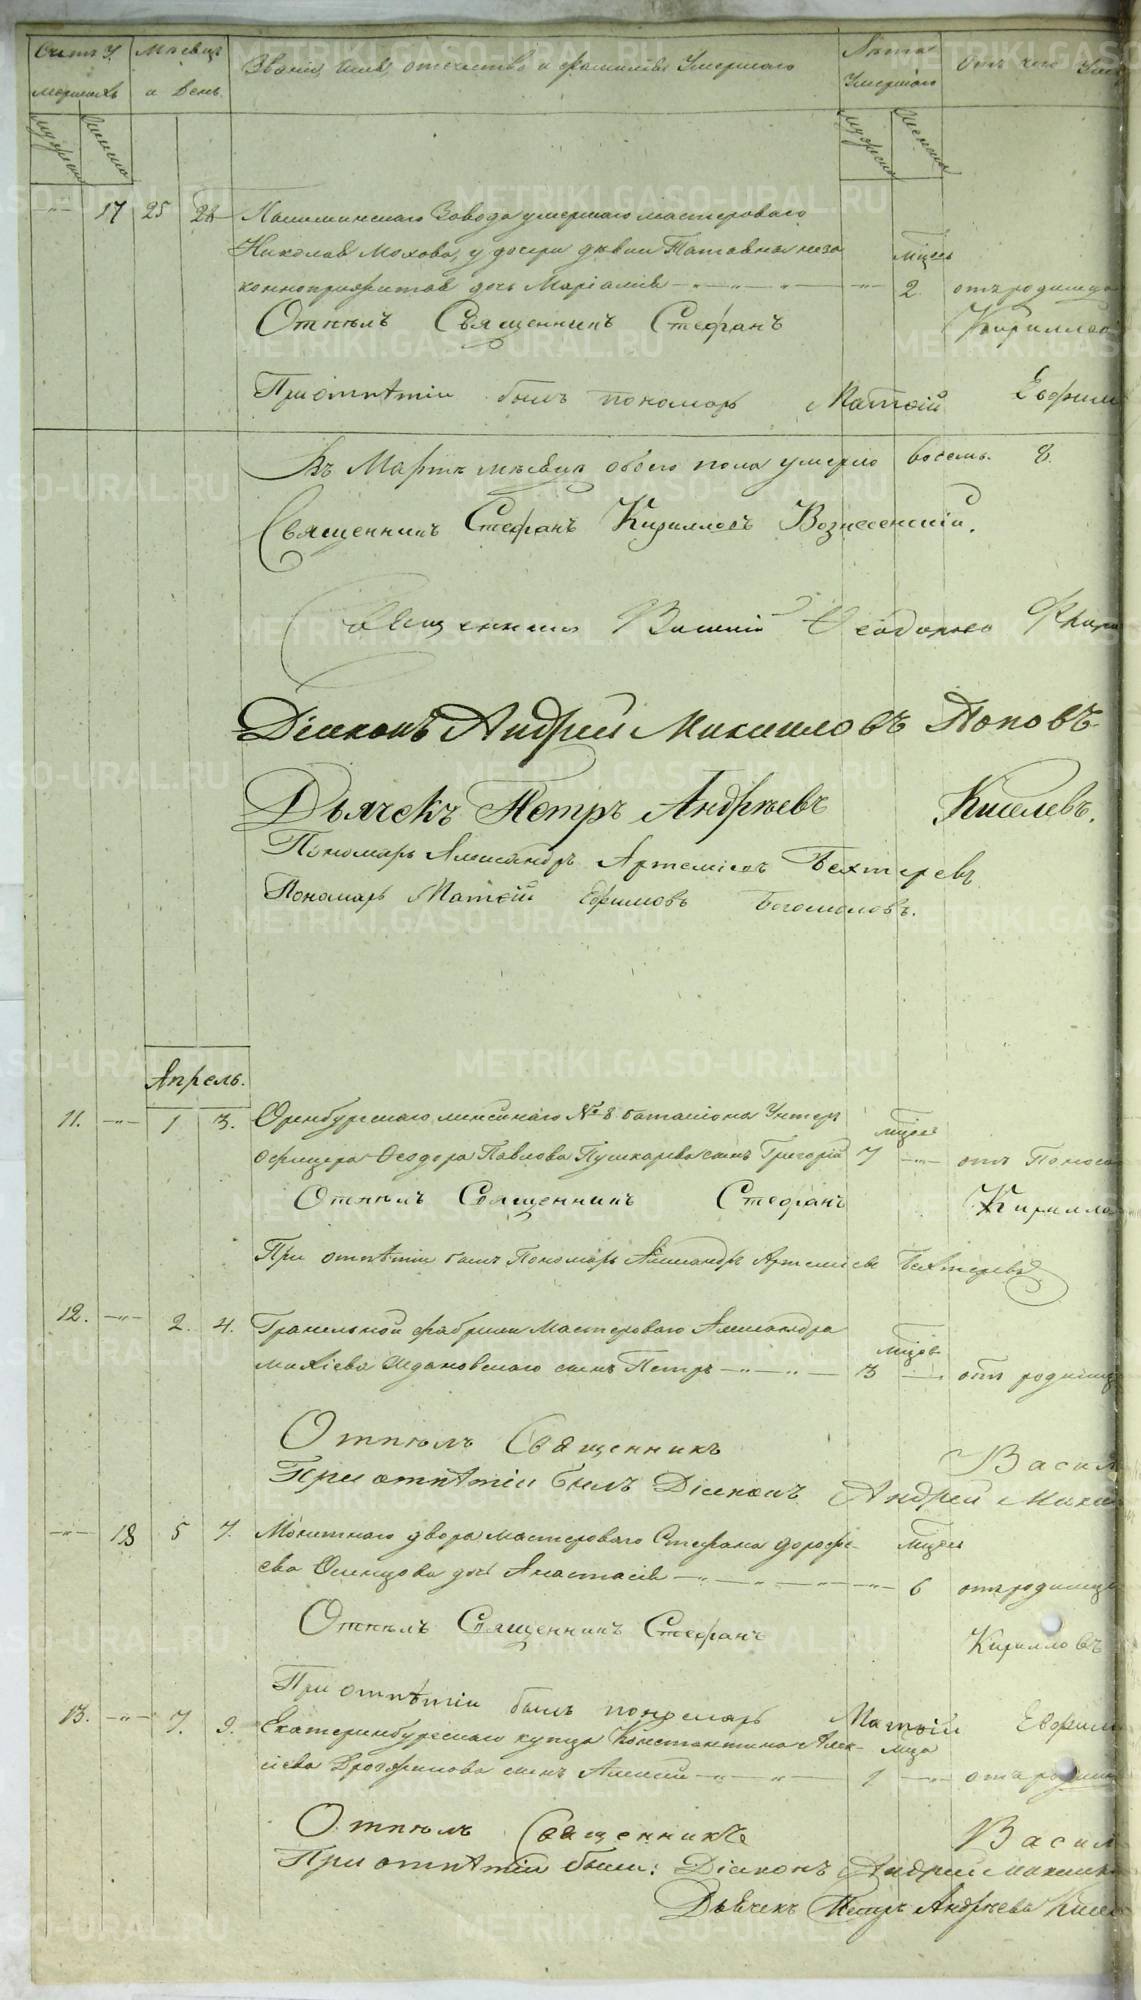 Счетъ У- Мѣсяцъ Званіе, имя, отечество и фамилія Умершаго Лѣта Отъ чего
мершихъ и День. Умершаго
мужеска женска мужеска женска
17 25 28 завода умершаго мастероваго
Николая Мохова, у дочери дѣвки неза мѣсяц
коннорожденная дочь 2. отъ родимца
Отпѣлъ Священникъ Стефанъ Кириллов
При отпѣтіи былъ пономарь Матѳій Ефим
Въ Мартѣ мѣсяцѣ обоего пола умерло восемь. 8.
Священникъ Стефанъ Кирилловъ Вознесенскій.
Священникъ
Діаконъ Андрей Максимовъ Поповъ
Дьячекъ Петръ Андрѣевъ Киселевъ.
Пономарь Александръ Артеміевъ Бехтеревъ
Пономарь Матѳій Ефимовъ Богомоловъ.
Апрѣль.
11. 1 3. Оренбургскаго линейнаго № 8 баталіона Унтеръ
офицера Ѳеодора Павлова Пушкарева сынъ Григорій 7 мѣсяц отъ Поноса
Отпѣлъ Священникъ Стефанъ Кирилло
При отпѣтіи былъ Пономарь Александръ Артеміевъ Бехтеревъ
12. 2. 4. Гранильной фабрики Мастероваго Александра
Ждановскаго сынъ Петръ 3 мѣсяц отъ родимц
Отпѣлъ Священникъ Васил
При отпѣтіи былъ Діаконъ Андрей Макси
18 5 7. Монетнаго двора мастероваго Стефана Дороѳе- мѣсяц
ева дочь Анастасія 6 отъ родимца
Отпѣлъ Священникъ Стефанъ Кирилловъ
При отпѣтіи былъ пономарь Матѳій Ефим
13. 7. 9. Екатеринбургскаго купца Константина Алек- мѣсяца
сіева сынъ Алексій 1 отъ родим
Отпѣлъ Священникъ Васил
При отпѣтіи были: Діаконъ Андрей Максим
Дьячекъ Петръ Андрѣевъ Кисе
METRIKI.GASO-URAL.RU